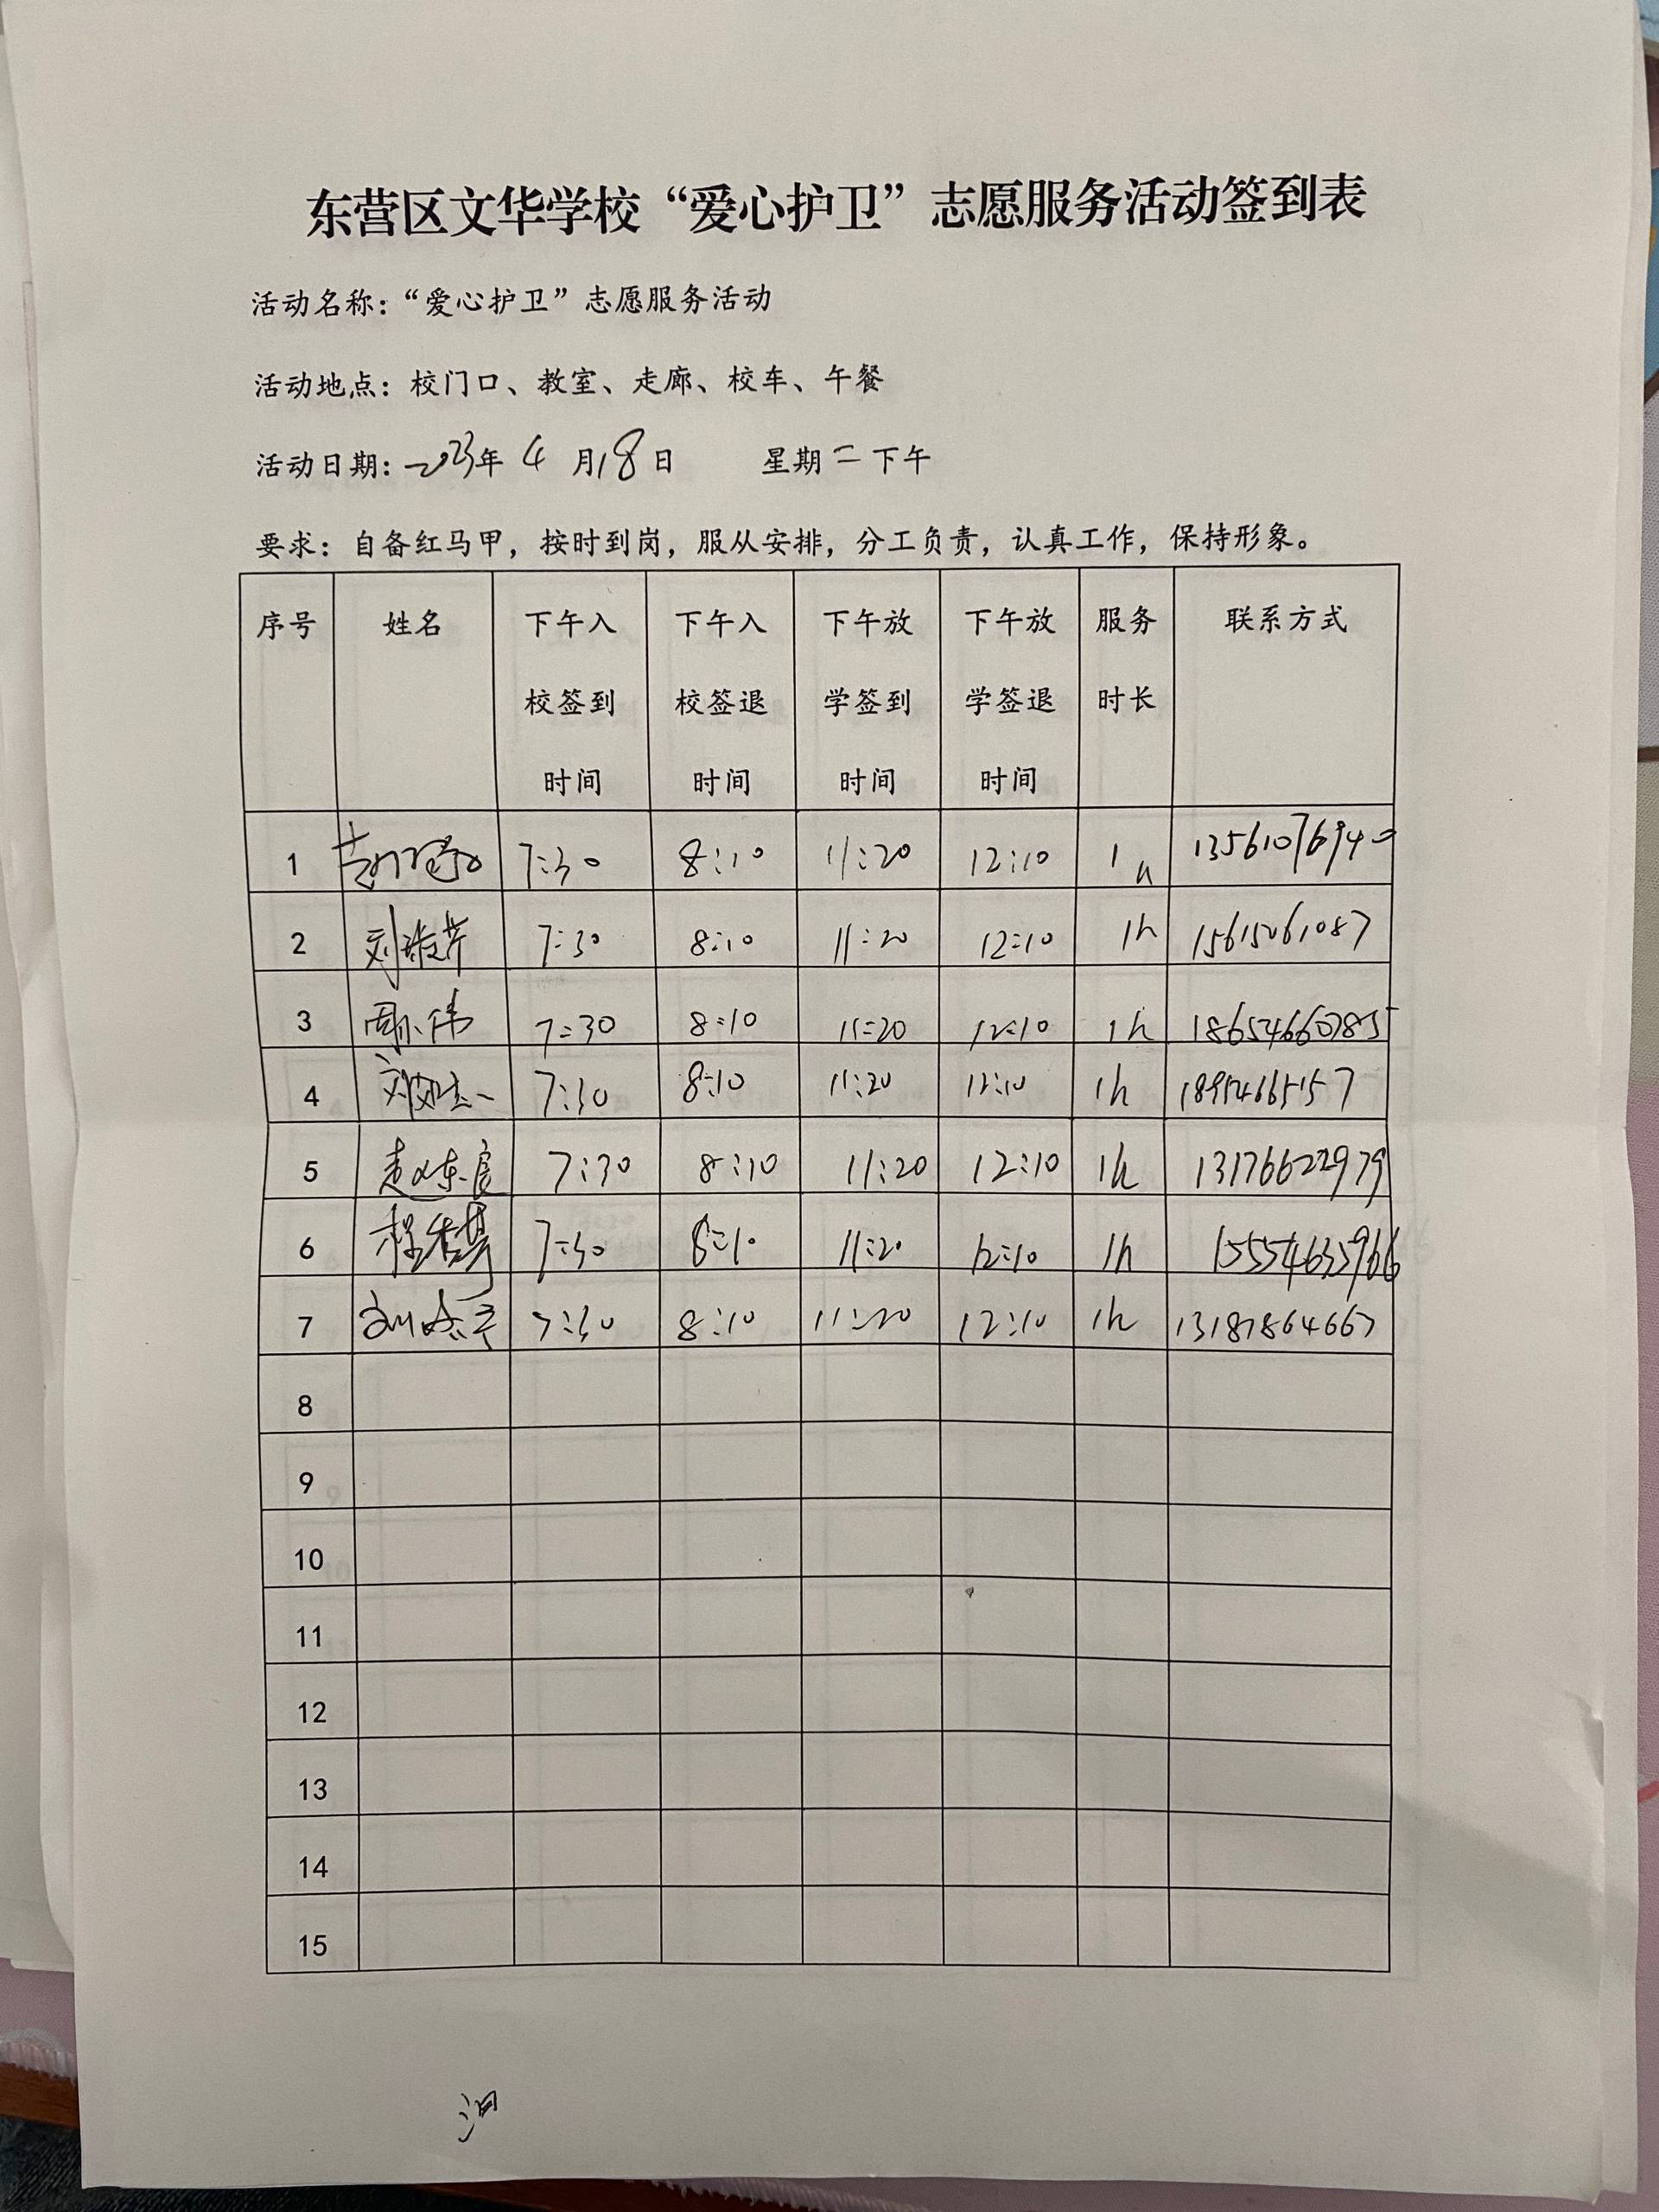 东营区文华学校“爱心护卫”志愿服务活动签到表
活动名称：“爱心护卫”志愿服务活动
活动地点：校门口、教室、走廊、校车、午餐
活动日期：二023年 4 月18日 星期二下午
要求：自备红马甲，按时到岗，服从安排，分工负责，认真工作，保持形象。
序号 姓名 下午入校签到时间 下午入校签退时间 下午放学签到时间 下午放学签退时间 服务时长 联系方式
1 7:30 8:10 11:20 12:10 1h 13561076940
2 刘 7:30 8:10 11:20 12:10 1h 15615061087
3 周小伟 7:30 8:10 11:20 12:10 1h
4 刘 7:30 8:10 11:20 12:10 1h
5 7:30 8:10 11:20 12:10 1h 13176622979
6 程 7:30 8:10 11:20 12:10 1h 15554635966
7 刘 7:30 8:10 11:20 12:10 1h 13181864667
8
9
10
11
12
13
14
15